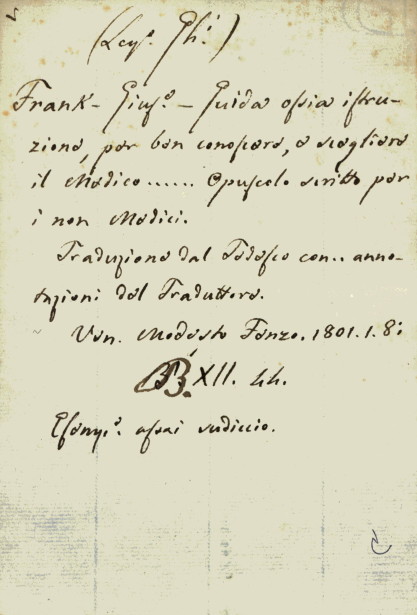 (Legs. Gh.)
Frank - Gius.e - Guida ossia istru-
zione, per ben conoscere, e scegliere
il Medico...... Opuscolo scritto per
i non Medici.
Traduzione dal Tedesco con.. anno-
tazioni del Traduttore.
Ven. Modesto Fenzo. 1801. 1. 8:
B. XII. 44.
Esemp.e assai sudiccio.